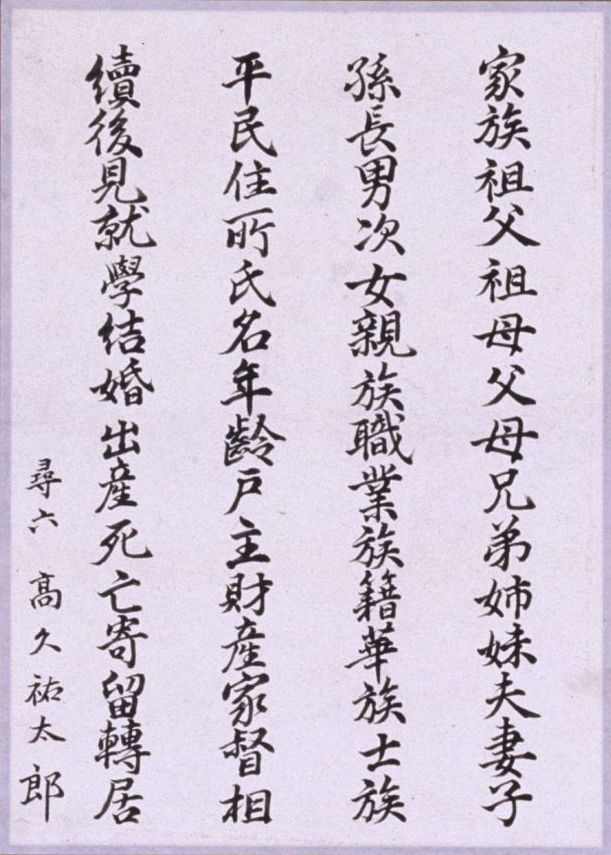 家族祖父祖母父母兄弟姉妹夫妻子
孫長男次女親族職業族籍華族士族
平民住所氏名年齡戸主財産家督相
續後見就學結婚出産死亡寄留轉居
尋六 高久祐太郎